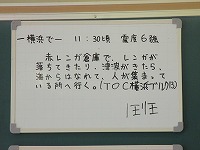 ー横浜でー 11:30頃 震度6強
赤レンガ倉庫で、レンガが
落ちてきたり、津波がきたら、
海からはなれて、人が集まって
いる所へ行く。(TOC横浜